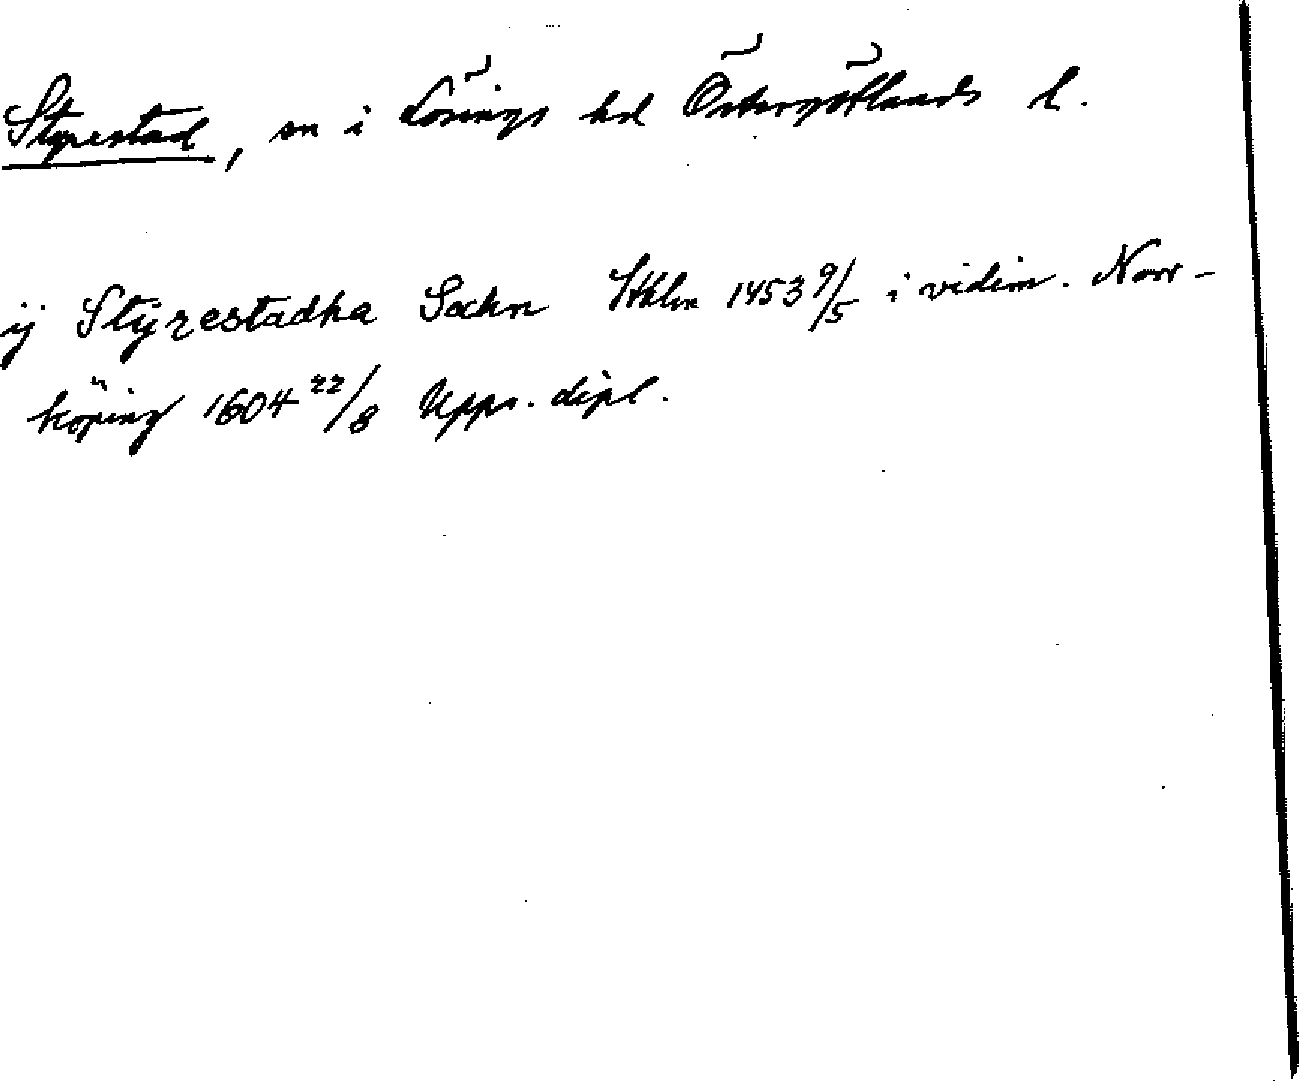 Styrestad, sn i Lösings hd Östergötlands l.
ij Stÿrestadha Sochn Sthlm 1453 9/5 i vidim. Norr-
köping 1604 22/8 Upps. dipl.